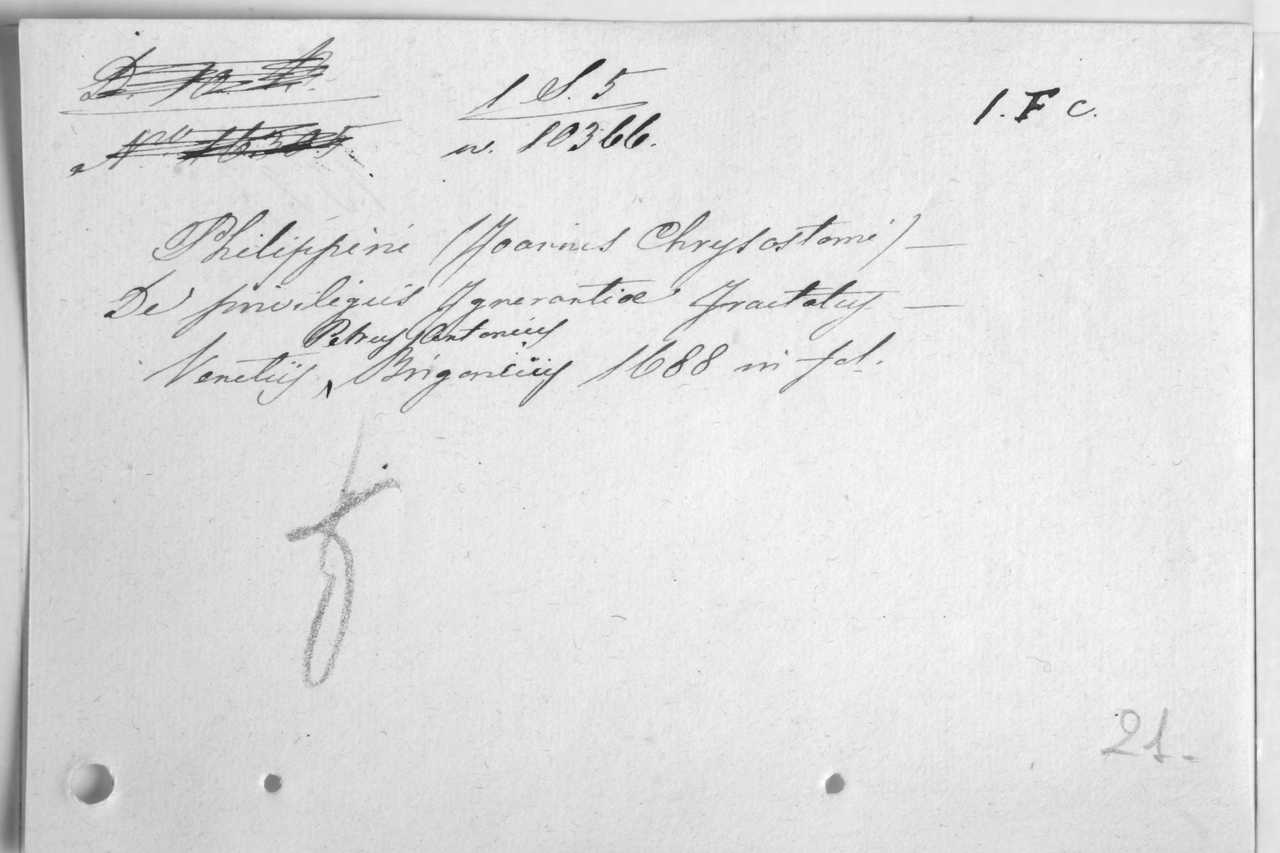 1 S. 5
n. 10366.
1. F c.
Philippini (Joannis Chrysostomi) —
De privilegiis Ignorantiae Tractatus —
Petrus Antonius
Venetiis Brigonciis 1688 in fol.
f
21.